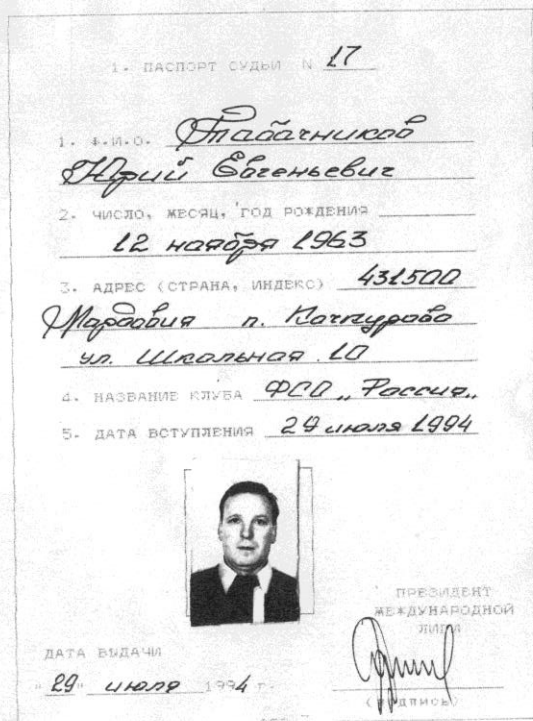 1. ПАСПОРТ СУДЬИ N 17
1. Ф.И.О. Табачников
Юрий Евгеньевич
2. ЧИСЛО, МЕСЯЦ, ГОД РОЖДЕНИЯ
12 ноября 1963
3. АДРЕС (СТРАНА, ИНДЕКС) 431500
Мордовия п. Кочкурово
ул. Школьная 10
4. НАЗВАНИЕ КЛУБА ФСО „Россия„
5. ДАТА ВСТУПЛЕНИЯ 29 июля 1994
ПРЕЗИДЕНТ
МЕЖДУНАРОДНОЙ
ЛИГИ
ДАТА ВЫДАЧИ
"29" июля 1994 г.
(ПОДПИСЬ)